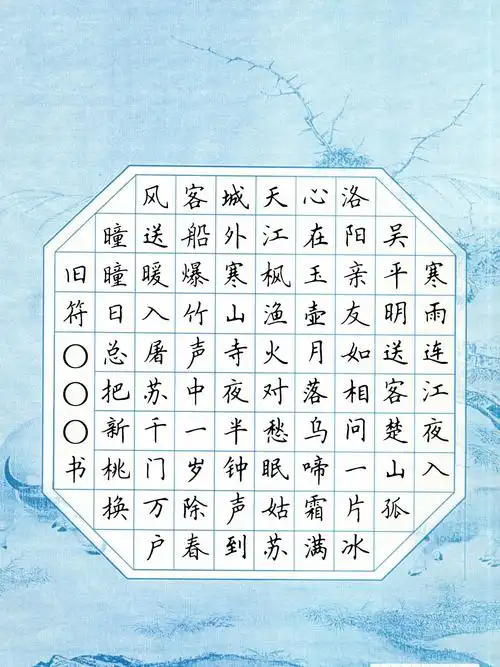 寒雨连江夜入
吴平明送客楚山孤
洛阳亲友如相问一片冰
心在玉壶月落乌啼霜满
天江枫渔火对愁眠姑苏
城外寒山寺夜半钟声到
客船爆竹声中一岁除春
风送暖入屠苏千门万户
瞳瞳日总把新桃换
旧符〇〇〇书